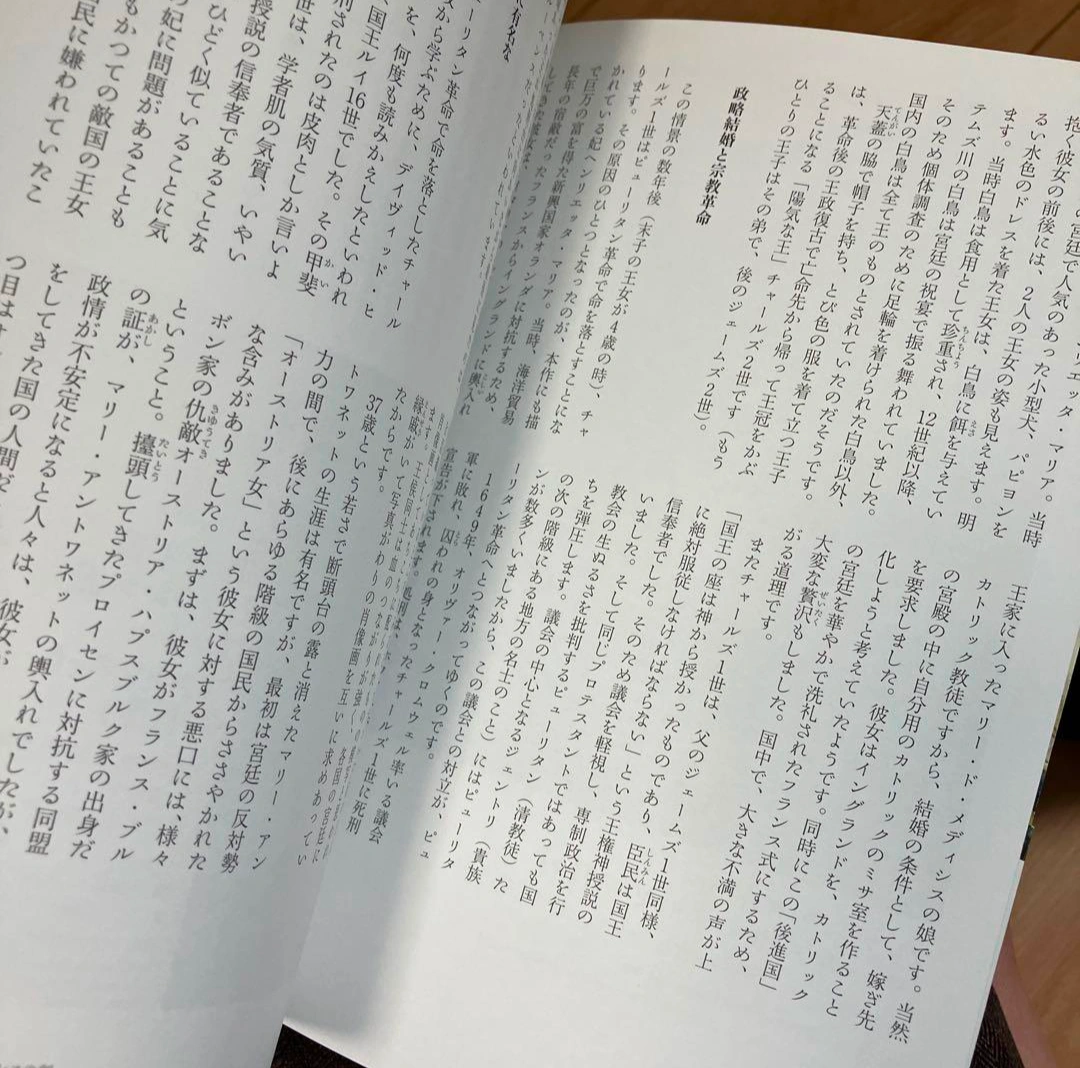 抱く彼女の前後には、2人の王女の姿も見えます。明
るい水色のドレスを着た王女は、白鳥に餌を与えてい
ます。当時白鳥は食用として珍重され、12世紀以降、
テムズ川の白鳥は宮廷の祝宴で振る舞われていました。
そのため個体調査のために足輪を着けられた白鳥以外、
国内の白鳥は全て王のものとされていたのだそうです。
天蓋の脇で帽子を持ち、とび色の服を着て立つ王子
は、革命後の王政復古で亡命先から帰って王冠をかぶ
ることになる「陽気な王」チャールズ2世です（もう
ひとりの王子はその弟で、後のジェームズ2世）。
政略結婚と宗教革命
この情景の数年後（末子の王女が4歳の時）、チャ
ールズ1世はピューリタン革命で命を落とすことにな
ります。その原因のひとつとなったのが、本作にも描
かれている妃ヘンリエッタ・マリア。当時、海洋貿易
で巨万の富を得た新興国家オランダに対抗するため、
長年の宿敵だったフランスからイングランドに輿入れ
王家に入ったマリー・ド・メディシスの娘です。当然
カトリック教徒ですから、結婚の条件として、嫁ぎ先
の宮殿の中に自分用のカトリックのミサ室を作ること
を要求しました。彼女はイングランドを、カトリック
化しようと考えていたようです。同時にこの「後進国」
の宮廷を華やかで洗礼されたフランス式にするため、
大変な贅沢もしました。国中で、大きな不満の声が上
がる道理です。
またチャールズ1世は、父のジェームズ1世同様、
「国王の座は神から授かったものであり、臣民は国王
に絶対服従しなければならない」という王権神授説の
信奉者でした。そのため議会を軽視し、専制政治を行
いました。そして同じプロテスタントではあっても国
教会の生ぬるさを批判するピューリタン（清教徒）た
ちを弾圧します。議会の中心となるジェントリ（貴族
の次の階級にある地方の名士のこと）にはピューリタ
ンが数多くいましたから、この議会との対立が、ピュ
ーリタン革命へとつながってゆくのです。
1649年、オリヴァー・クロムウェル率いる議会
軍に敗れ、囚われの身となったチャールズ1世に死刑
宣告が下されます。
ーリタン革命で命を落としたチャール
から学ぶために、デイヴィッド・ヒ
を、何度も読みかえしたといわれ
国王ルイ16世でした。その甲斐
刑されたのは皮肉としか言いよ
世は、学者肌の気質、いやい
授説の信奉者であることな
ひどく似ていることに気
妃に問題があることも
もかつての敵国の王女
民に嫌われていたこ
縁戚がいて写真がわりの肖像画を互いに求めあってい
たからです。
37歳という若さで断頭台の露と消えたマリー・アン
トワネットの生涯は有名ですが、最初は宮廷の反対勢
力の間で、後にあらゆる階級の国民からささやかれた
「オーストリア女」という彼女に対する悪口には、様々
な含みがありました。まずは、彼女がフランス・ブル
ボン家の仇敵オーストリア・ハプスブルク家の出身だ
ということ。擡頭してきたプロイセンに対抗する同盟
の証が、マリー・アントワネットの輿入れでしたが、
政情が不安定になると人々は、彼女が
をしてきた国の人間だ